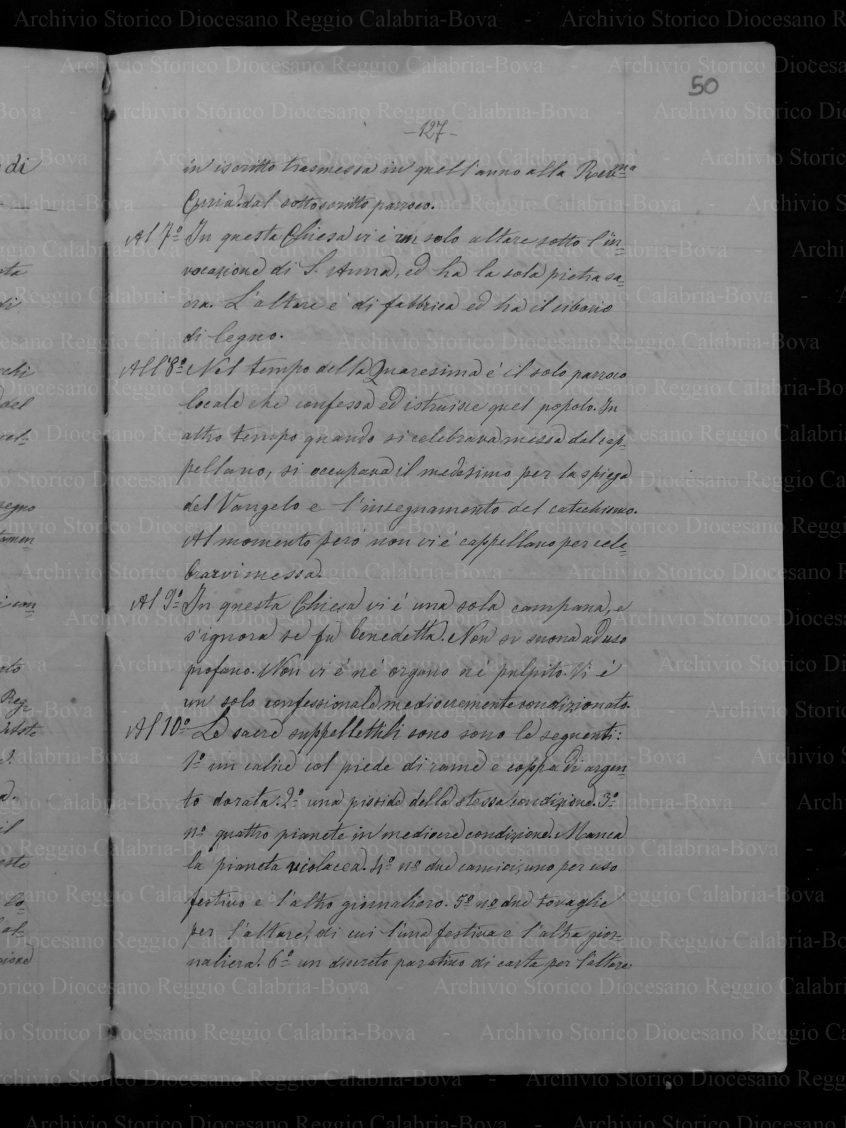 50
-127-
in iscritto trasmessa in quell'anno alla Rev.ma
Curia dal sottoscritto parroco.
Al 7º In questa Chiesa vi è un solo altare sotto l'in=
vocazione di S. Anna, ed ha la sola pietra sa=
cra. L'altare è di fabbrica ed ha il ciborio
di legno.
All'8º Nel tempo della Quaresima è il solo parroco
locale che confessa ed istruisce quel popolo. In
altro tempo quando si celebrava messa dal cap=
pellano, si occupava il medesimo per la spiega
del Vangelo e l'insegnamento del catechismo.
Al momento però non vi è cappellano per cele=
brarvi messa.
Al 9º In questa Chiesa vi è una sola campana, e
s'ignora se fu benedetta. Non si suona ad uso
profano. Non vi è né organo né pulpito. Vi è
un solo confessionale mediocremente condizionato.
Al 10º Le sacre suppellettili sono sono le seguenti:
1º un calice col piede di rame e coppa di argen=
to dorata. 2º una pisside della stessa condizione. 3º
nº quattro pianete in mediocre condizione. Manca
la pianeta violacea. 4º nº due camici, uno per uso
festivo e l'altro giornaliero. 5º nº due tovaglie
per l'altare, di cui l'una festiva e l'altra gior=
naliera. 6º un discreto paratino di carta per l'altare
di
sta
di
del
segno
Reg=
il
Archivio Storico Diocesano Reggio Calabria-Bova